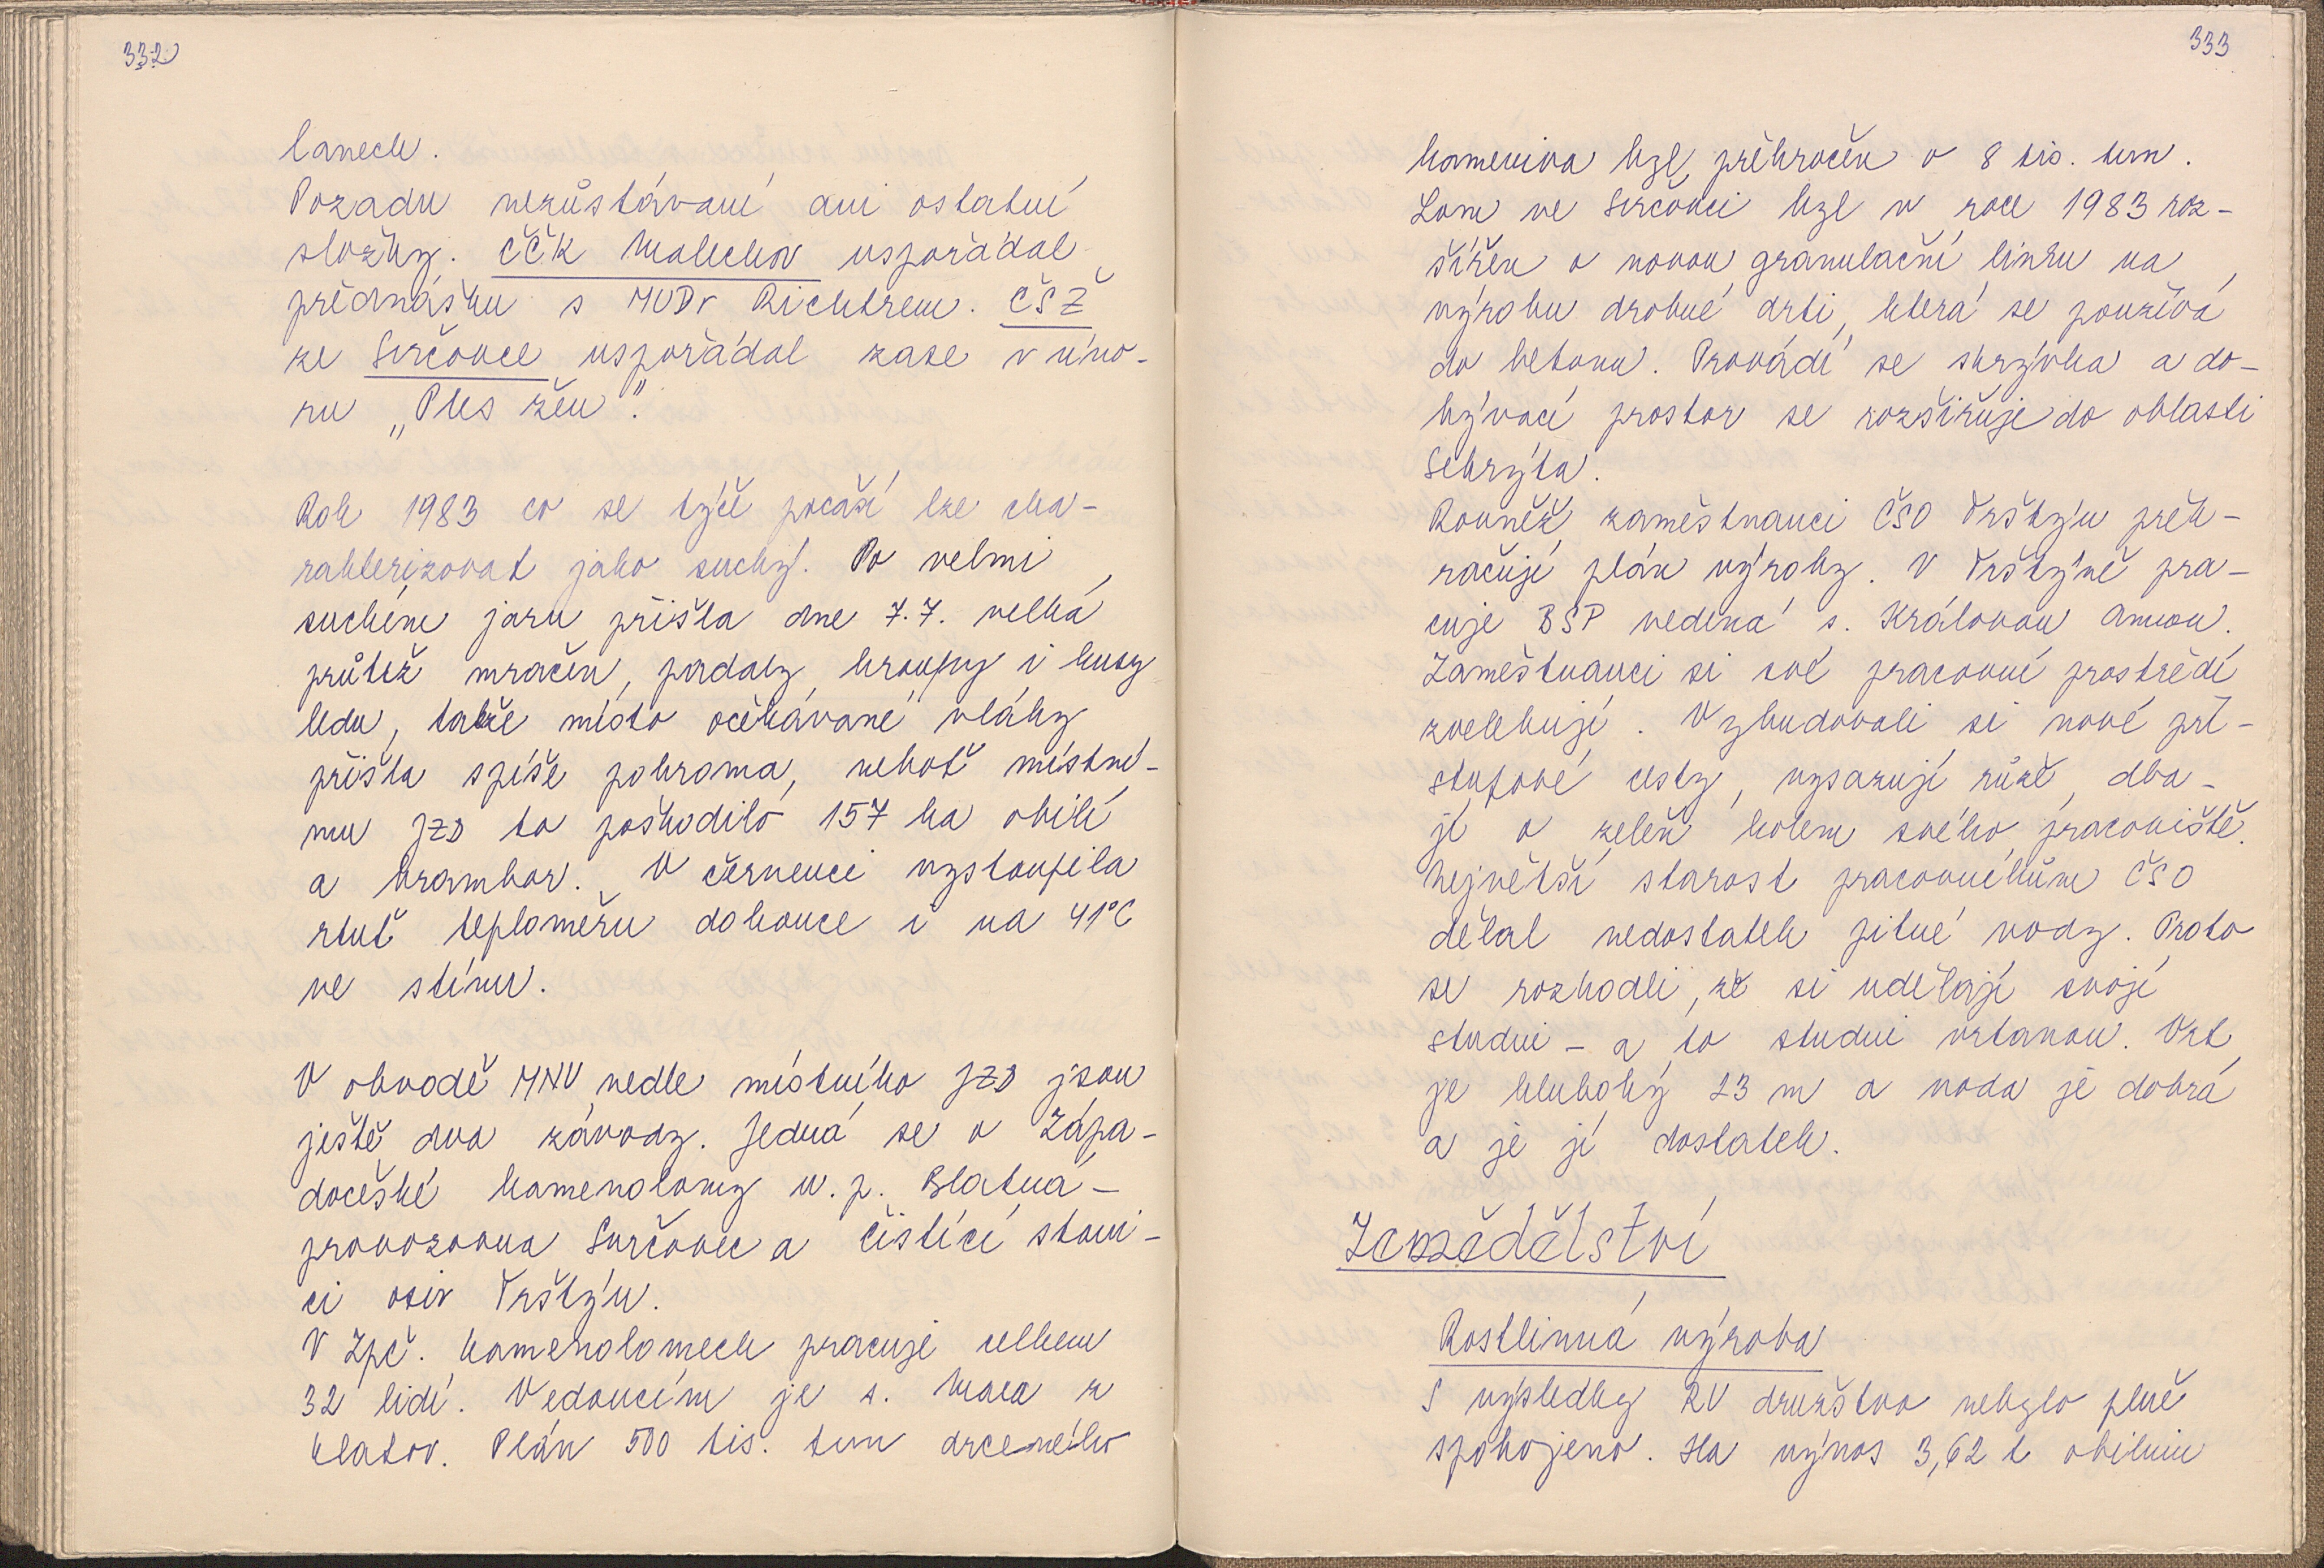 332
lanech.
Pozadu nezůstávaní ani ostatní
složky. ČČK Malechov uspořádal
přednášku s MUDr Richtrem. ČSŽ
ze Svrčovce uspořádal zase v úno-
ru „Ples žen".
Rok 1983 co se týče počasí lze cha-
rakterizovat jako suchý. Po velmi
suchém jaru přišla dne 7.7. velká
průtež mračen, padaly kroupy i kusy
ledu, takže místo očekávané vláhy
přišla spíše pohroma, neboť místní-
mu JZD to poškodilo 157 ha obilí
a brambor. V červenci vystoupila
rtuť teploměru dokonce i na 41°C
ve stínu.
V obvodě MNV vedle místního JZD jsou
ještě dva závody. Jedná se o Zápa-
dočeské kamenolomy n. p. Blatná -
provozovna Svrčovec a čistící stani-
ci osiv Trštýn.
V Zpč. kamenolomech pracuje celkem
32 lidí. Vedoucím je s. z
Klatov. Plán 500 tis. tun drceného
333
kameniva byl překročen o 8 tis. tun.
Lom ve Svrčovci byl v roce 1983 roz-
šířen o novou granulační linku na
výrobu drobné drti, která se používá
do betonu. Provádí se skrývka a do-
bývací prostor se rozšiřuje do oblasti
Sekrýta.
Rovněž zaměstnanci ČSO Trštýn přek-
račují plán výroby. V Trštýně pra-
cuje BSP vedená s. Královou Annou.
Zaměstnanci si své pracovní prostředí
zvelebují. Vybudovali si nové pří-
stupové cesty, vysazují růže, dba-
jí o zeleň kolem svého pracoviště.
Největší starost pracovníkům ČSO
dělal nedostatek pitné vody. Proto
se rozhodli, že si udělají svojí
studni - a to studni vrtanou. Vrt
je hluboký 23 m a voda je dobrá
a je jí dostatek.
Zemědělství
Rostlinná výroba
S výsledky RV družstvo nebylo plně
spokojeno. Ha výnos 3,62 t obilnin